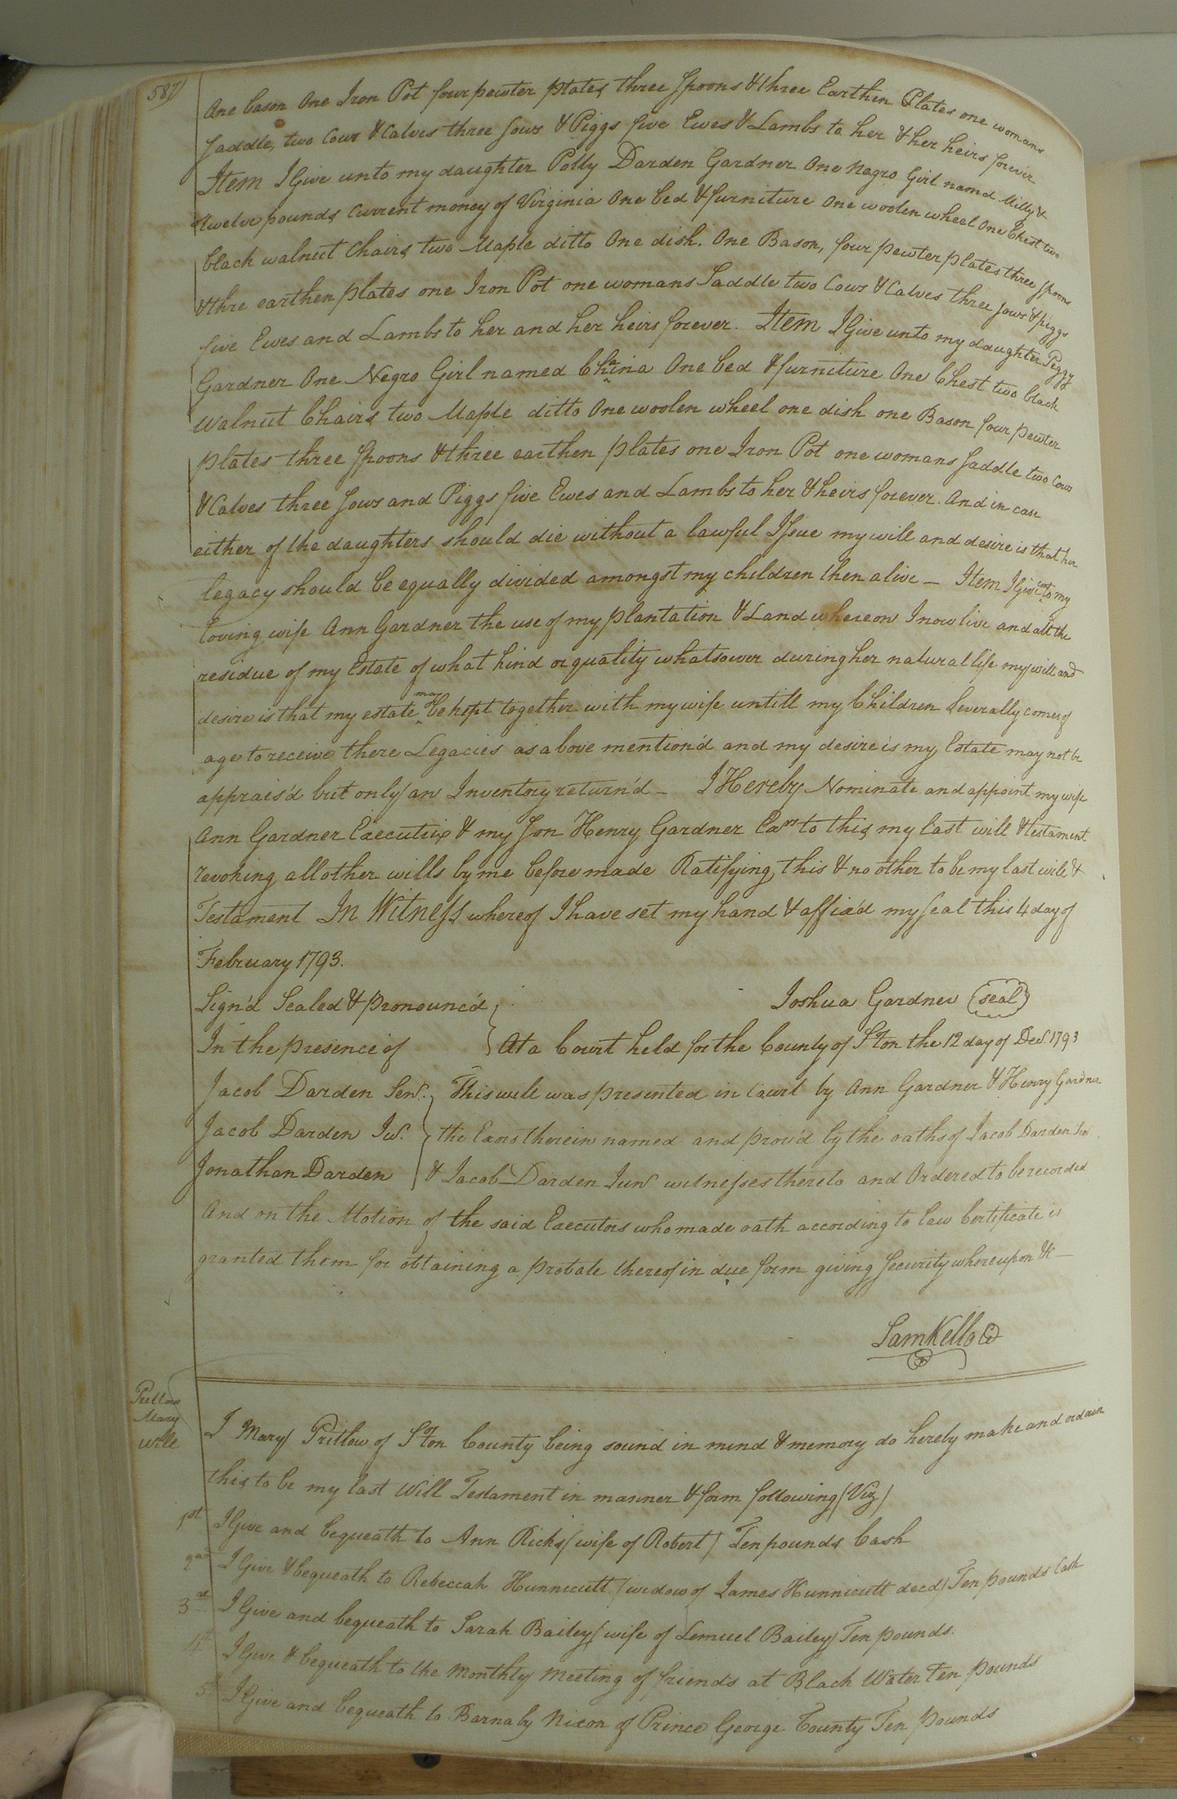 587)
One bason One Iron Pot four pewter plates three Spoons & three Earthin Plates one womans
Saddle, two Cows & Calves three Sows & Piggs five Ewes & Lambs to her & her heirs forever
Item I Give unto my daughter Polly Darden Gardner One Nagro Girl named Milly &
twelve pounds Current money of Virginia One bed & furniture One woolen wheel One Chest two
black walnut Chairs two Maple ditto One dish. One Bason, four pewter plates three Spoons
& thre earthen plates one Iron Pot one womans Saddle two Cows & Calves three Sows & piggs
five Ewes and Lambs to her and her heirs forever. Item I Give unto my daughter Peggy
Gardner One Negro Girl named China One bed & furniture One Chest two black
Walnut Chairs two Maple ditto One woolen wheel one dish one Bason four pewter
plates three Spoons & three earthen plates one Iron Pot one womans Saddle two Cows
& Calves three Sows and Piggs five Ewes and Lambs to her & heirs forever. And in case
either of the daughters should die without a lawful Issue my will and desire is that her
legacy should be equally divided amongst my children then alive - Item I Give unto my
loving wife Ann Gardner the use of my plantation & Land whereon I now live and all the
residue of my Estate of what kind or quality whatsoever during her natural life my will and
desire is that my estate may be kept together with my wife untill my Children Severally comes of
age to receive there Legacies as above mention'd and my desire is my Estate may not be
apprais'd but only an Inventory return'd - I Hereby Nominate and appoint my wife
Ann Gardner Executrix & my Son Henry Gardner Exors to this my last will & testament
revoking all other wills by me before made Ratifying this & no other to be my last will &
Testament In Witness whereof I have set my hand & affix'd my seal this 4 day of
February 1793.
Sign'd Sealed & pronounc'd Joshua Gardner (seal)
In the presence of At a Court held for the County of Sºton the 12 day of Decr 1793
Jacob Darden Senr. This will was presented in Court by Ann Gardner & Henry Gardner
Jacob Darden Jur. the Exors therein named and prov'd by the oaths of Jacob Darden Sen
Jonathan Darden & Jacob Darden Junr witnesses thereto and Ordered to be recorded
And on the Motion of the said Executors who made oath according to law Certificate is
granted them for obtaining a probate thereof in due form giving Security whereupon &c -
Sam Kello
Pretlow
Mary
Will
I Mary Pritlow of Sºton County being sound in mind & memory do hereby make and ordain
this to be my last Will Testament in manner & form following (Viz)
1st I Give and bequeath to Ann Ricks (wife of Robert) Ten pounds Cash
2nd I Give & bequeath to Rebeccah Hunnicutt (widow of James Hunnicutt decd) Ten pounds Cash
3 I Give and bequeath to Sarah Bailey (wife of Lemuel Bailey) Ten pounds.
4 I Give & bequeath to the Monthly Meeting of friends at Black Water ten pounds
5 I Give and bequeath to Barnaby Nixon of Prince George County Ten pounds